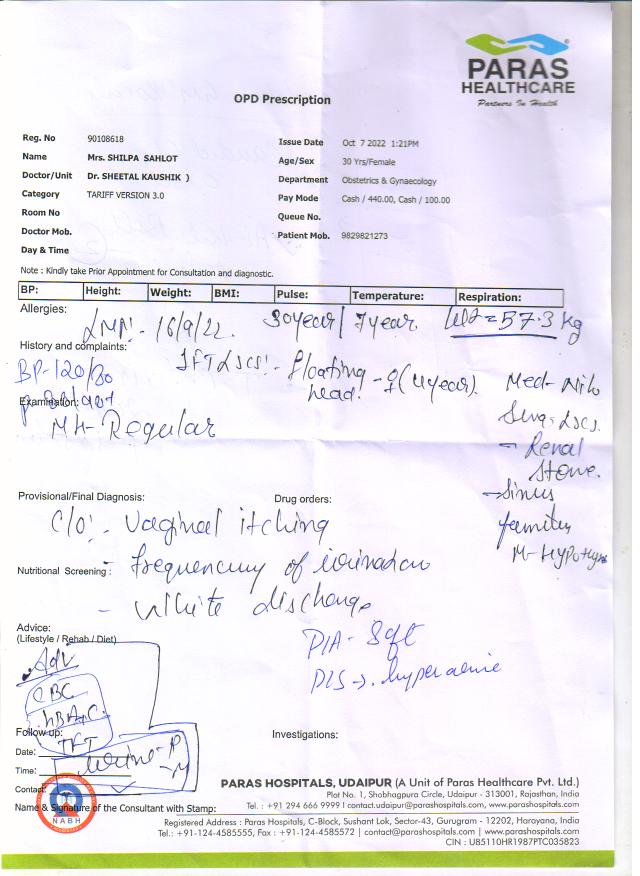 PARAS
HEALTHCARE
Partners In Health
OPD Prescription
Reg. No 90108618
Issue Date Oct 7 2022 1:21PM
Name Mrs. SHILPA SAHLOT
Age/Sex 30 Yrs/Female
Doctor/Unit Dr. SHEETAL KAUSHIK )
Department Obstetrics & Gynaecology
Category TARIFF VERSION 3.0
Pay Mode Cash / 440.00, Cash / 100.00
Room No
Queue No.
Doctor Mob.
Patient Mob. 9829821273
Day & Time
Note : Kindly take Prior Appointment for Consultation and diagnostic.
BP: Height: Weight: BMI: Pulse: Temperature: Respiration:
Allergies:
LMP:- 16/9/22. 30year/ 7year. = 57.3 kg
History and complaints:
BP-120/80
1FTLSCS:- floating head. - (4year).
Med- Nil
Examination:
MH- Regular
Surg- LSCS.
- Renal Stone.
- Sinus
family
M- Hypothy
Provisional/Final Diagnosis: Drug orders:
C/O:- Vaginal itching
Nutritional Screening : - frequency of urination
- White discharge
Advice:
(Lifestyle / Rehab / Diet)
P/A- Soft
Adv
CBC
HBA1C.
TFT
Urine- R
M
Follow up:
Investigations:
Date:
Time:
Contact:
Name & Signature of the Consultant with Stamp:
NABH
PARAS HOSPITALS, UDAIPUR (A Unit of Paras Healthcare Pvt. Ltd.)
Plot No. 1, Shobhagpura Circle, Udaipur - 313001, Rajasthan, India
Tel. : +91 294 666 9999 | contact.udaipur@parashospitals.com, www.parashospitals.com
Registered Address : Paras Hospitals, C-Block, Sushant Lok, Sector-43, Gurugram - 12202, Harayana, India
Tel.: +91-124-4585555, Fax : +91-124-4585572 | contact@parashospitals.com | www.parashospitals.com
CIN : U85110HR1987PTC035823